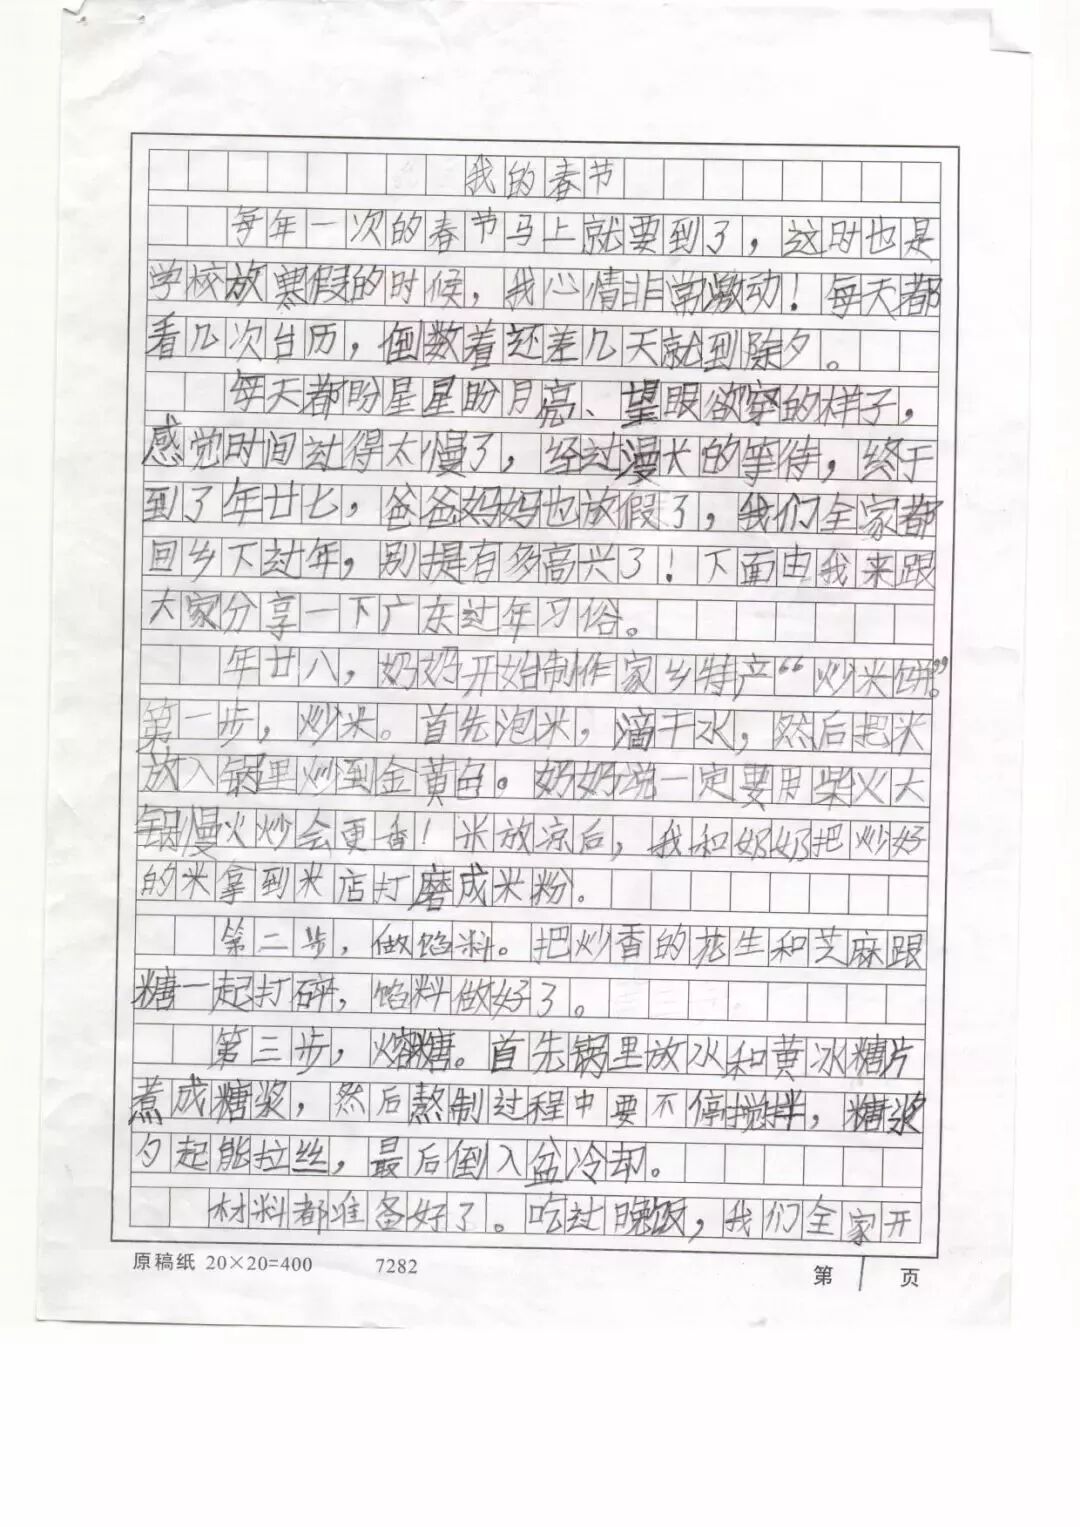 我的春节
每年一次的春节马上就要到了，这时也是
学校放寒假的时候，我心情非常激动！每天都
看几次台历，倒数着还差几天就到除夕。
每天都盼星星盼月亮、望眼欲穿的样子，
感觉时间过得太慢了，经过漫长的等待，终于
到了年廿七，爸爸妈妈也放假了，我们全家都
回乡下过年，别提有多高兴了！下面由我来跟
大家分享一下广东过年习俗。
年廿八，奶奶开始制作家乡特产“炒米饼”。
第一步，炒米。首先泡米，滴干水，然后把米
放入锅里炒到金黄色。奶奶说一定要用柴火大
锅慢火炒会更香！米放凉后，我和奶奶把炒好
的米拿到米店打磨成米粉。
第二步，做馅料。把炒香的花生和芝麻跟
糖一起打碎，馅料做好了。
第三步，熔糖。首先锅里放水和黄冰糖片
煮成糖浆，然后熬制过程中要不停搅拌，糖浆
勺起能拉丝，最后倒入盆冷却。
材料都准备好了。吃过晚饭，我们全家开
原稿纸 20×20=400 7282 第 1 页